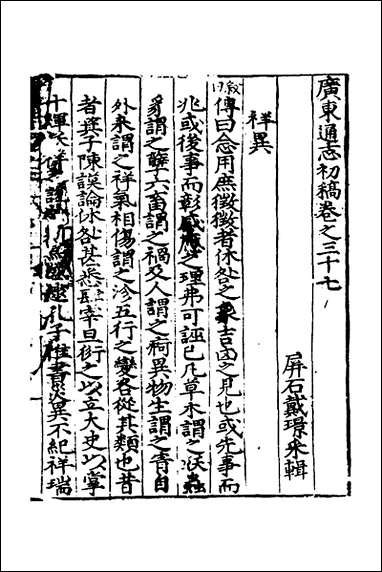 廣東通志初稿卷之三十七
屏石戴璟采輯
祥異
傳曰念用庶徵徵者休咎之象吉凶之見也或先事而
兆或後事而彰感應之理弗可誣已凡草木謂之妖蟲
豸謂之孽六畜謂之禍及人謂之痾異物生謂之眚自
外來謂之祥氣相傷謂之沴五行之變各從其類也昔
者箕子陳謨論休咎甚悉冢宰且衍之以立大史以掌
十煇 孔子惟書災異不紀祥瑞